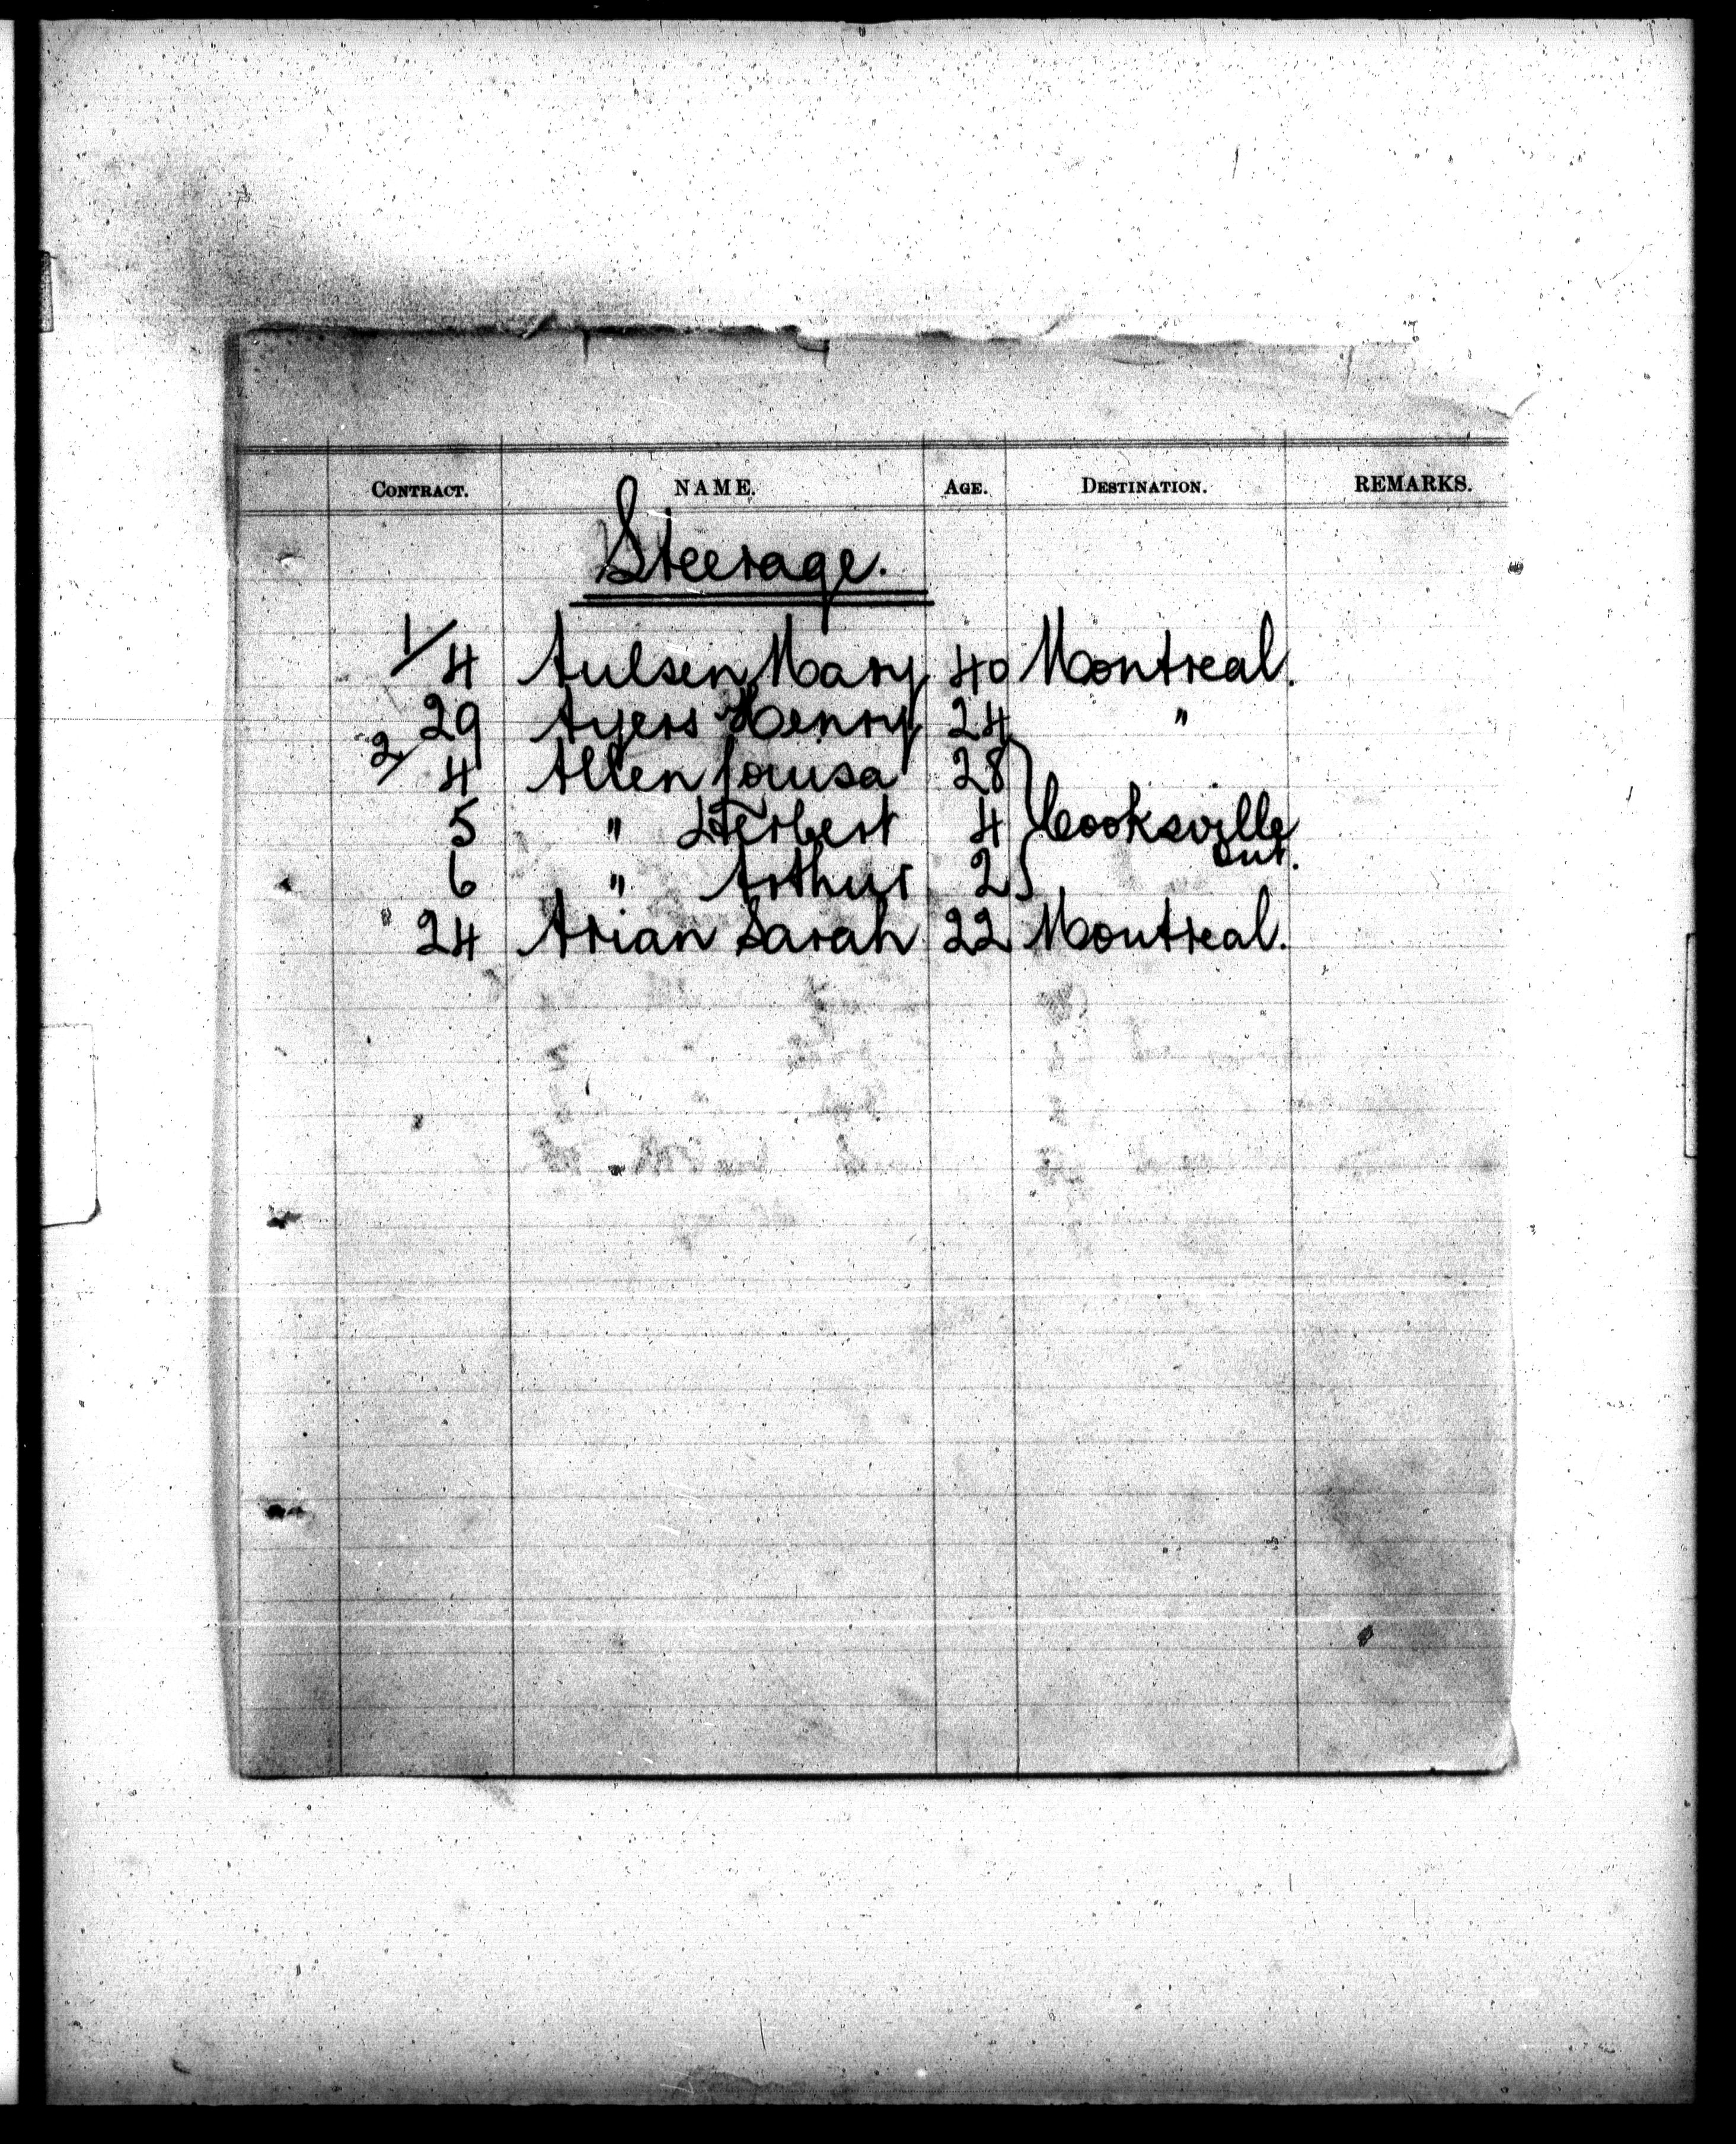 CONTRACT. NAME. AGE. DESTINATION. REMARKS.
Steerage.
1/4 Aulsen Mary 40 Montreal.
29 Ayers Henry 24 "
2/4 Allen Louisa 28
5 " Herbert 4 Cooksville
Ont.
6 " Arthur 2
24 Arian Sarah 22 Montreal.